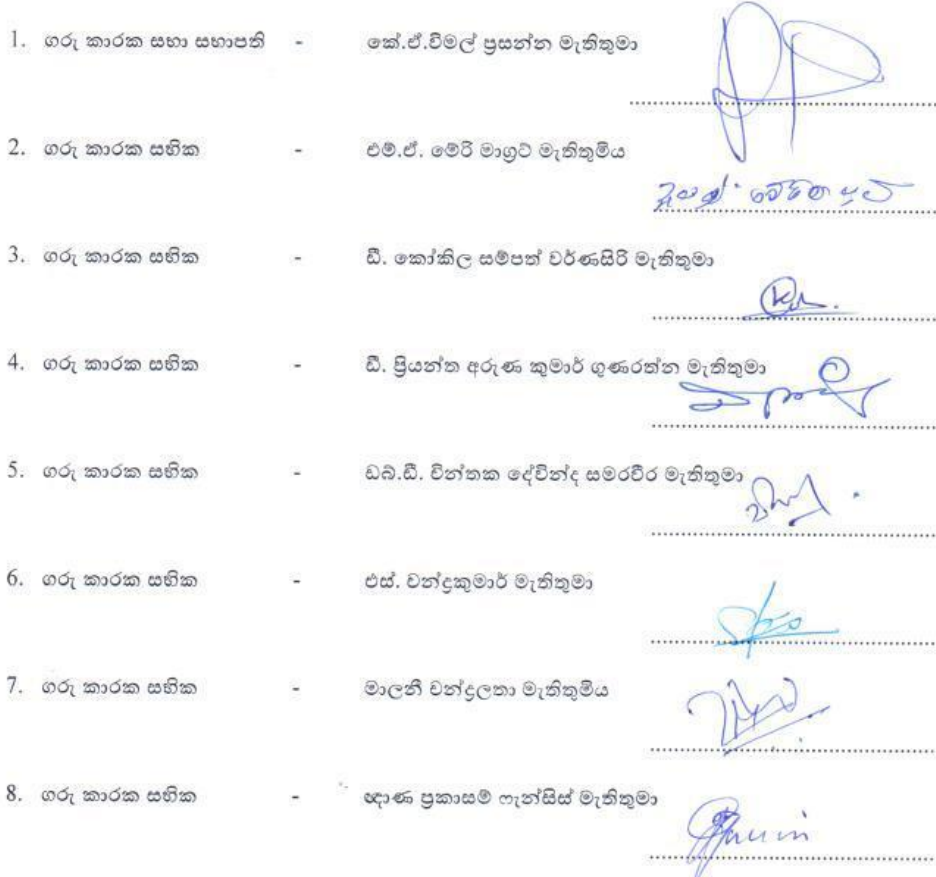 1. ගරු කාරක සභා සභාපති - කේ.ඒ.විමල් ප්‍රසන්න මැතිතුමා
2. ගරු කාරක සභික - එම්.ඒ. මේරි මාග්‍රට් මැතිතුමිය
3. ගරු කාරක සභික - ඩී. කෝකිල සම්පත් වර්ණසිරි මැතිතුමා
4. ගරු කාරක සභික - ඩී. ප්‍රියන්ත අරුණ කුමාර් ගුණරත්න මැතිතුමා
5. ගරු කාරක සභික - ඩබ්.ඩී. චින්තක දේවින්ද සමරවීර මැතිතුමා
6. ගරු කාරක සභික - එස්. චන්ද්‍රකුමාර් මැතිතුමා
7. ගරු කාරක සභික - මාලනී චන්ද්‍රලතා මැතිතුමිය
8. ගරු කාරක සභික - ඥාණ ප්‍රකාසම් ෆැන්සිස් මැතිතුමා